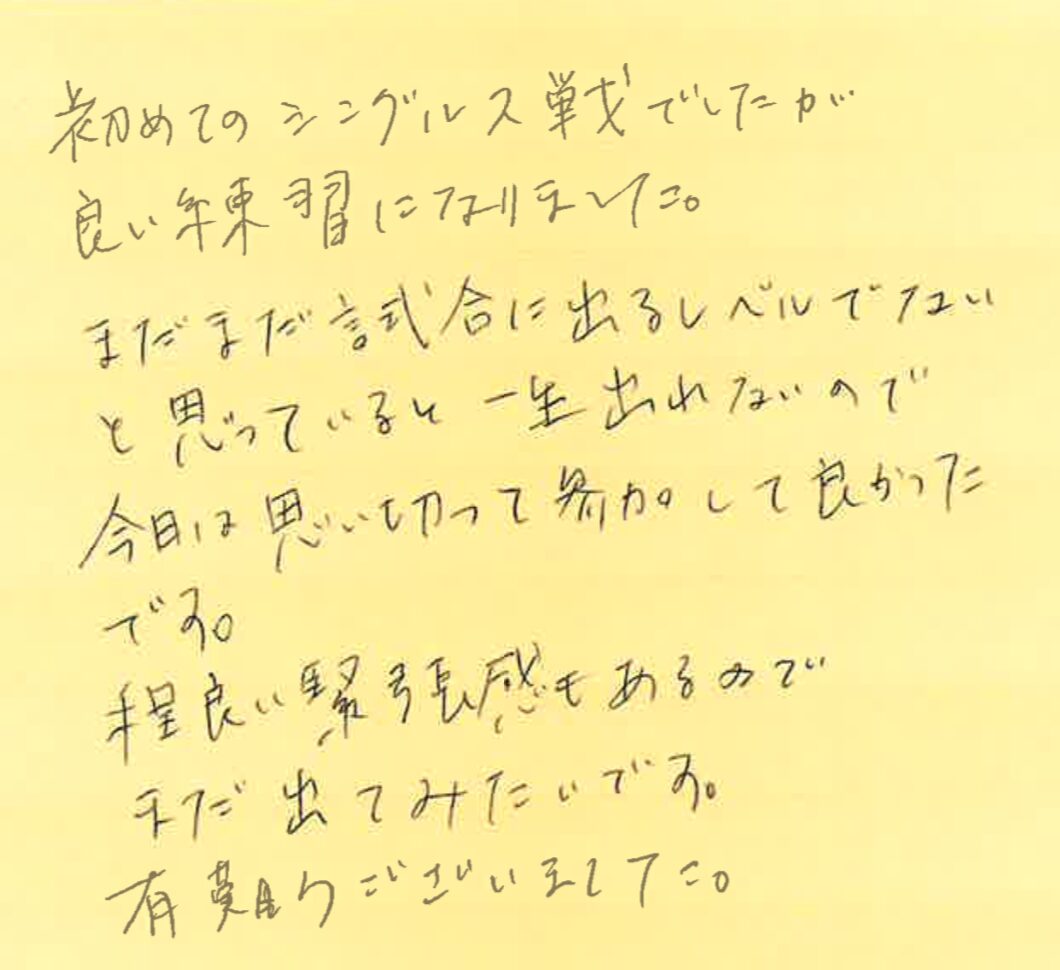 初めてのシングルス戦でしたが
良い練習になりました。
まだまだ試合に出るレベルでない
と思っていると一生出れないので
今日は思い切って参加して良かった
です。
程良い緊張感もあるので
まだ出てみたいです。
有難うございました。